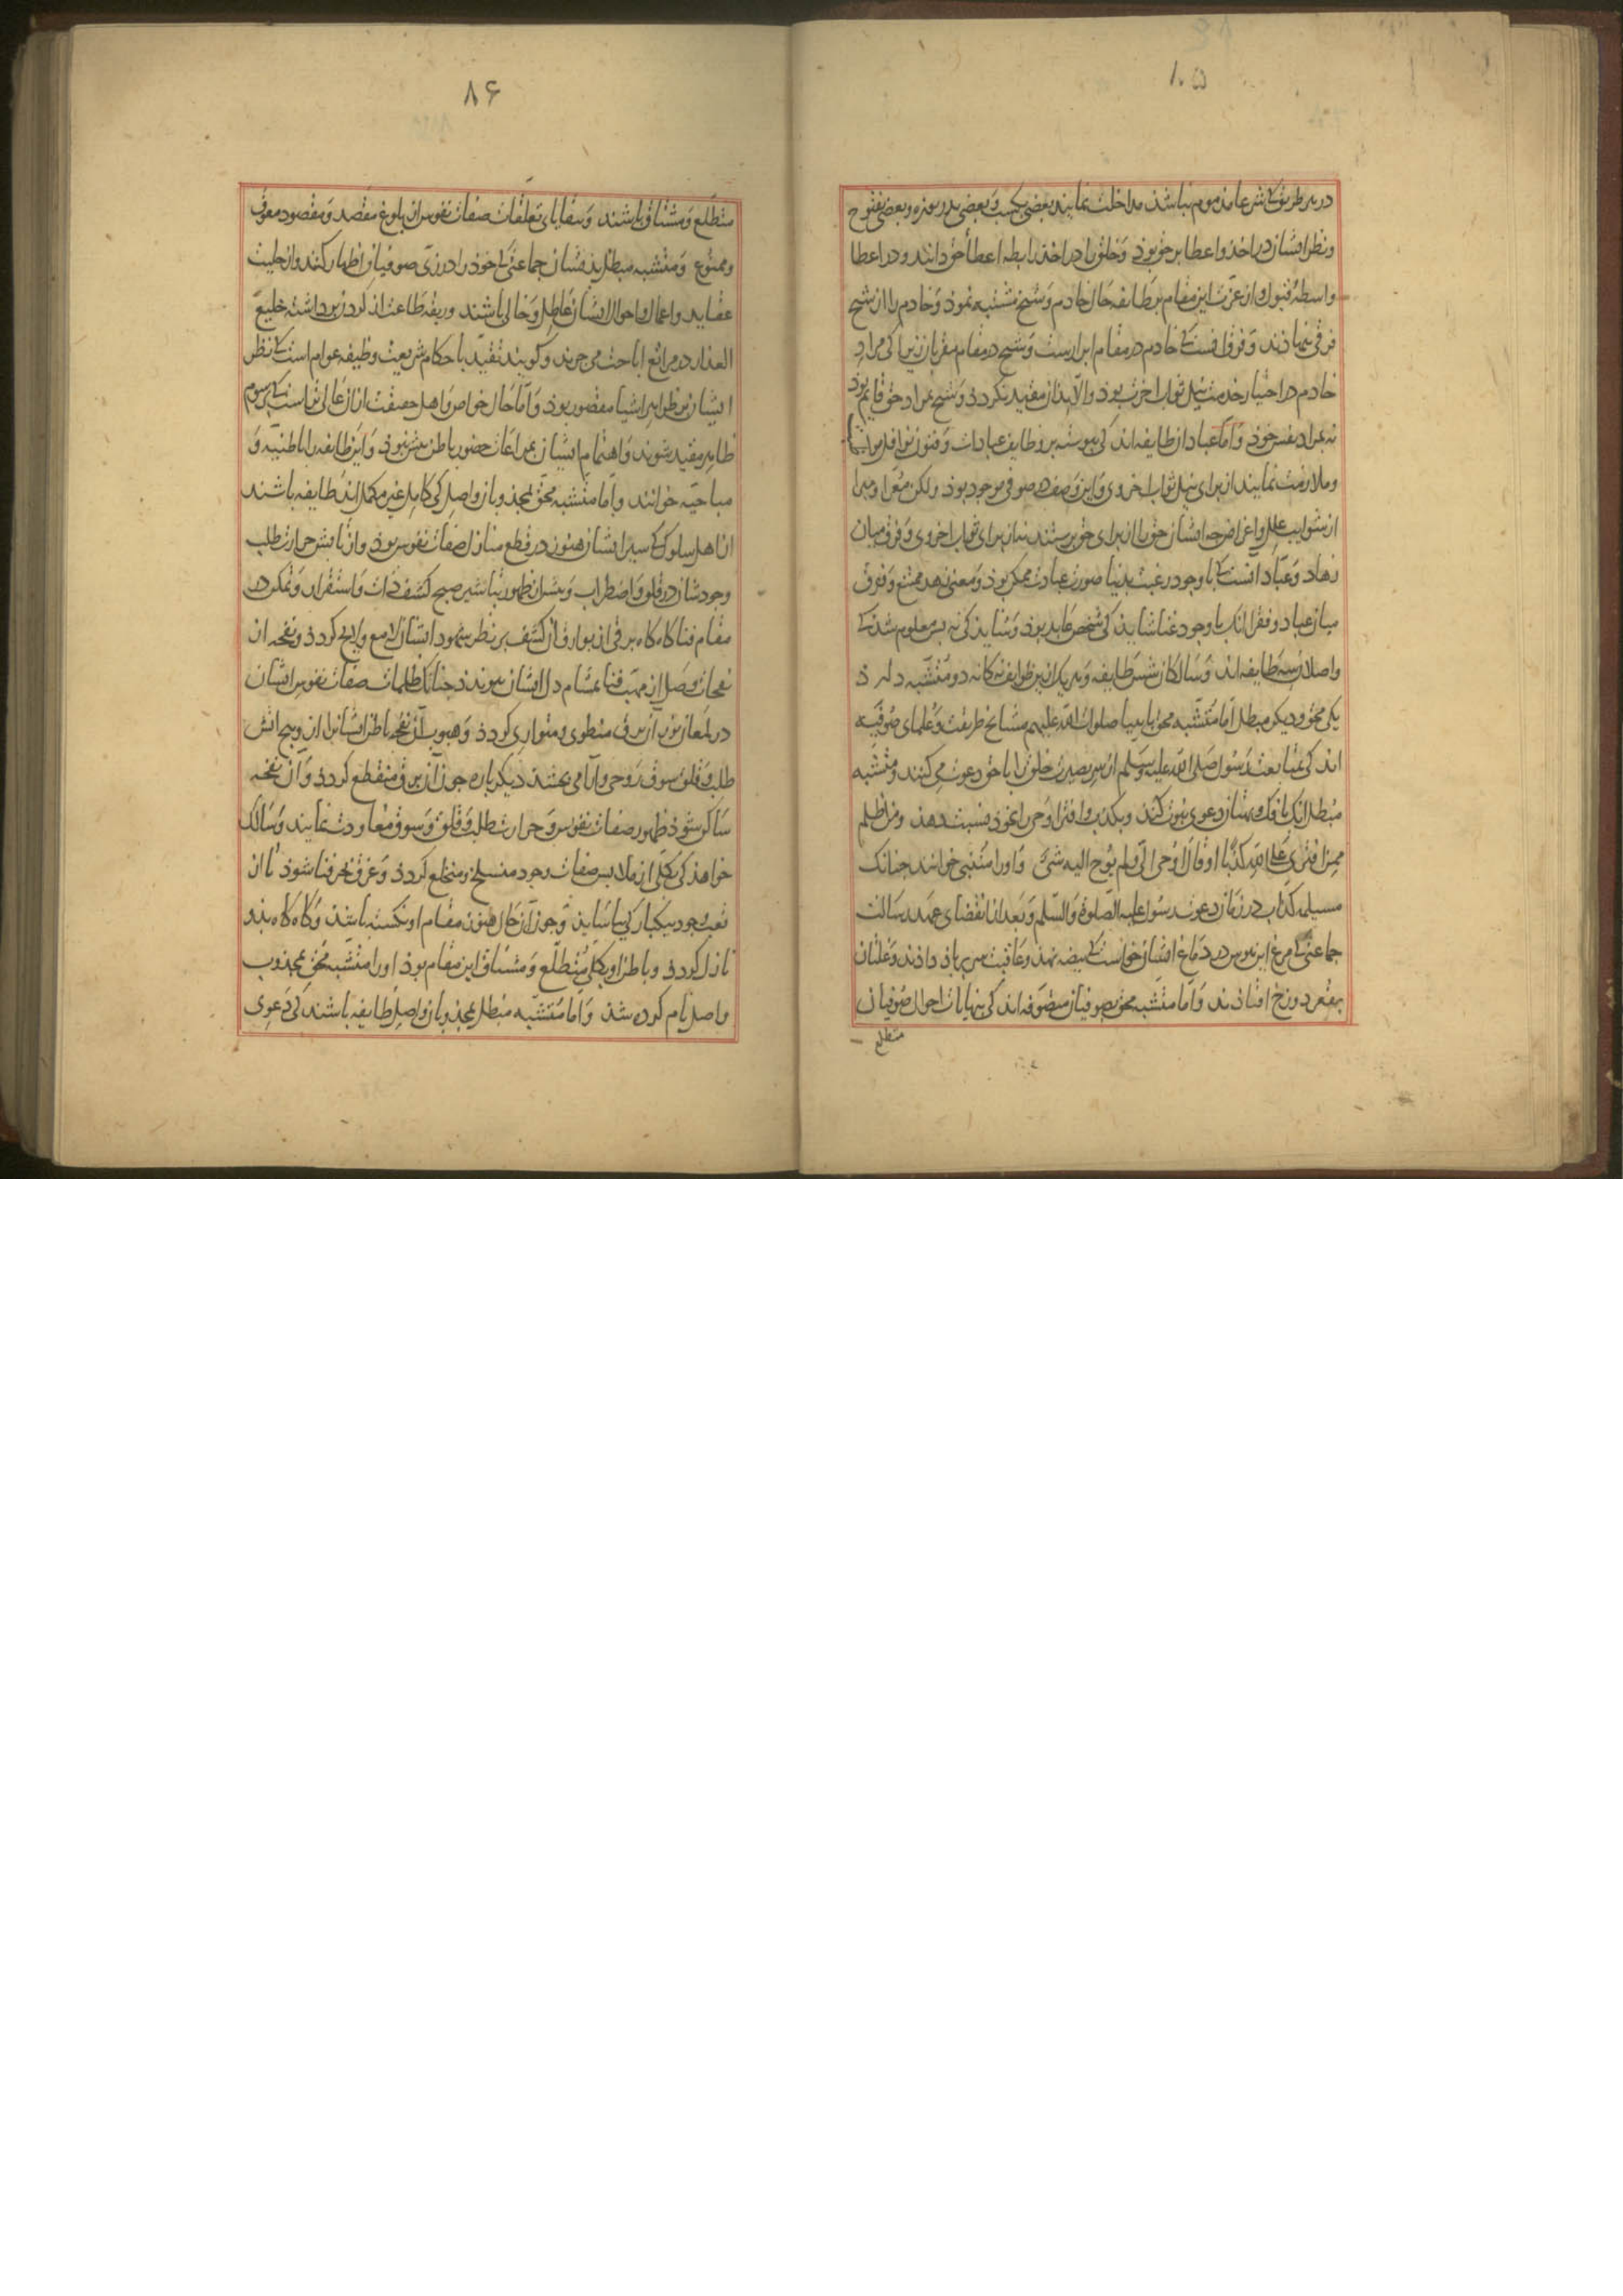 ۱۰۵
در هر طریق کی شرعا مذموم نباشد مداخلت نمایند بعضی بکسب و بعضی بدریوزه و بعضی بفتوح
و نظر ایشان در اخذ و اعطا بر حق بوذ و خلق را در اخذ رابطه اعطأ حق دانند و در اعطا
واسطهٔ قبول و از عزت این مقام بر طایفه حال خادم و شیخ مشتبه نموذ و خادم را از شیخ
فرقی ننهاذند و فرق انست کی خادم در مقام ابرارست و شیخ در مقام مقربان زیرا کی مراد
خادم در اختیار خدمت نیل ثواب اخرت بوذ و الا بدان مقید نگردذ و شیخ بمراد حق قایم بوذ
نه بمراد نفس خوذ و اما عباد ان طایفه اند کی پیوسته بر وظایف عبادات و فنون نوافل مواظبت
و ملازمت نمایند از برای نیل ثواب اخروی و این وصف در صوفی موجود بوذ ولکن معرا و مبرا
از شوایب علل و اغراض چه ایشان حق را از برای حق پرستند نه از برای ثواب اخروی و فرق میان
زهاد و عباد انست کی با وجود رغبت بدنیا صورت عبادت ممکن بوذ و معنی زهد ممتنع و فرق
میان عباد و فقرا انک با وجود غنا شاید کی شخص عابد بوذ و شاید کی نه پس معلوم شذ کی
واصلان سه طایفه اند و سالکان شش طایفه و هر یک از این طوایف نه کانه دو متشبه دارذ
یکی محق و دیگر مبطل اما متشبه محق بانبیا صلوات الله علیهم مشایخ طریقت و علمای صوفیه
اند کی بمتابعت رسول صلی الله علیه و سلم از سر بصیرت خلق را با حق دعوت می کنند و متشبه
مبطل انک بافک و بهتان دعوی نبوت کنند و بکذب و افترا وحی را بخوذ نسبت دهذ و من اظلم
ممن افتری علی الله کذبا او قال اوحی الی و لم یوح الیه شئ و او را متنبی خوانند چنانک
مسیلمه کذاب در زمان دعوت رسول علیه الصلوة و السلم و بعد از انقضای عهد رسالت
جماعتی کی مرغ این هوس در دماغ ایشان خواست کی بیضه نهذ و عاقبت سر بباذ داذند و غلتان
بقعر دوزخ افتاذند و اما متشبه محق بصوفیان متصوفه اند کی بنهایات احوال صوفیان
متطلع
۸۶
متطلع و مشتاق باشند و ببقایای تعلقات صفات نفوس از بلوغ مقصد و مقصود معوق
و ممنوع و متشبه مبطل بذیشان جماعتی کی خوذ را در زی صوفیان اظهار کنند و از حلیت
عقاید و اعمال و احوال ایشان عاطل و خالی باشند و ربقه طاعت از گردن برداشته خلیع
العذار در مراتع اباحت می چرند و گویند تقید باحکام شریعت وظیفه عوام است کی نظر
ایشان بر ظواهر اشیا مقصور بوذ و اما حال خواص و اهل حقیقت ازان عالی تراست کی برسوم
ظاهر مقید شوند و اهتمام ایشان بمراعات حضور باطن بیش نبوذ و این طایفه را باطنیه و
مباحیه خوانند و اما متشبه محق بمجذوبان واصل کی کامل غیر مکمل اند طایفه باشند
از اهل سلوک کی سیر ایشان هنوز در قطع منازل صفات نفوس بوذ و از تابش حرارت طلب
وجود شان در قلق و اضطراب و پیش از ظهور تباشیر صبح کشف ذات و استقرار و تمکن در
مقام فنا گاه گاه برقی از بوارق آن کشف بر نظر شهود ایشان لامع و لایح گردذ و نفحه از
نفحات وصل از مهب فنا بمشام دل ایشان پیوندذ چنانک ظلمات صفات نفوس ایشان
در لمعان نور آن برق منطوی و متواری گردذ و هبوب آن نفحه باطن ایشانرا از وهج اتش
طلب و قلق سوق روحی و آرامی بخشذ دیگر باره چون آن برق منقطع گردذ و آن نفحه
ساکن شوذ ظهور صفات نفوس و حرارت طلب و قلق و شوق معاودت نمایند و سالک
خواهذ کی بکلی از ملابس صفات وجود منسلخ و منخلع گردذ و غرق بحر فنا شوذ تا از
تعب وجود بیکبارگی بیاساید و چون آن حال هنوز مقام او نگشته باشذ و گاه گاه بذو
نازل گردذ و باطن او بکلی متطلع و مشتاق این مقام بوذ او را متشبه محق بمجذوب
واصل نام کرده شذ و اما متشبه مبطل بمجذوبان واصل طایفه باشند کی دعوی